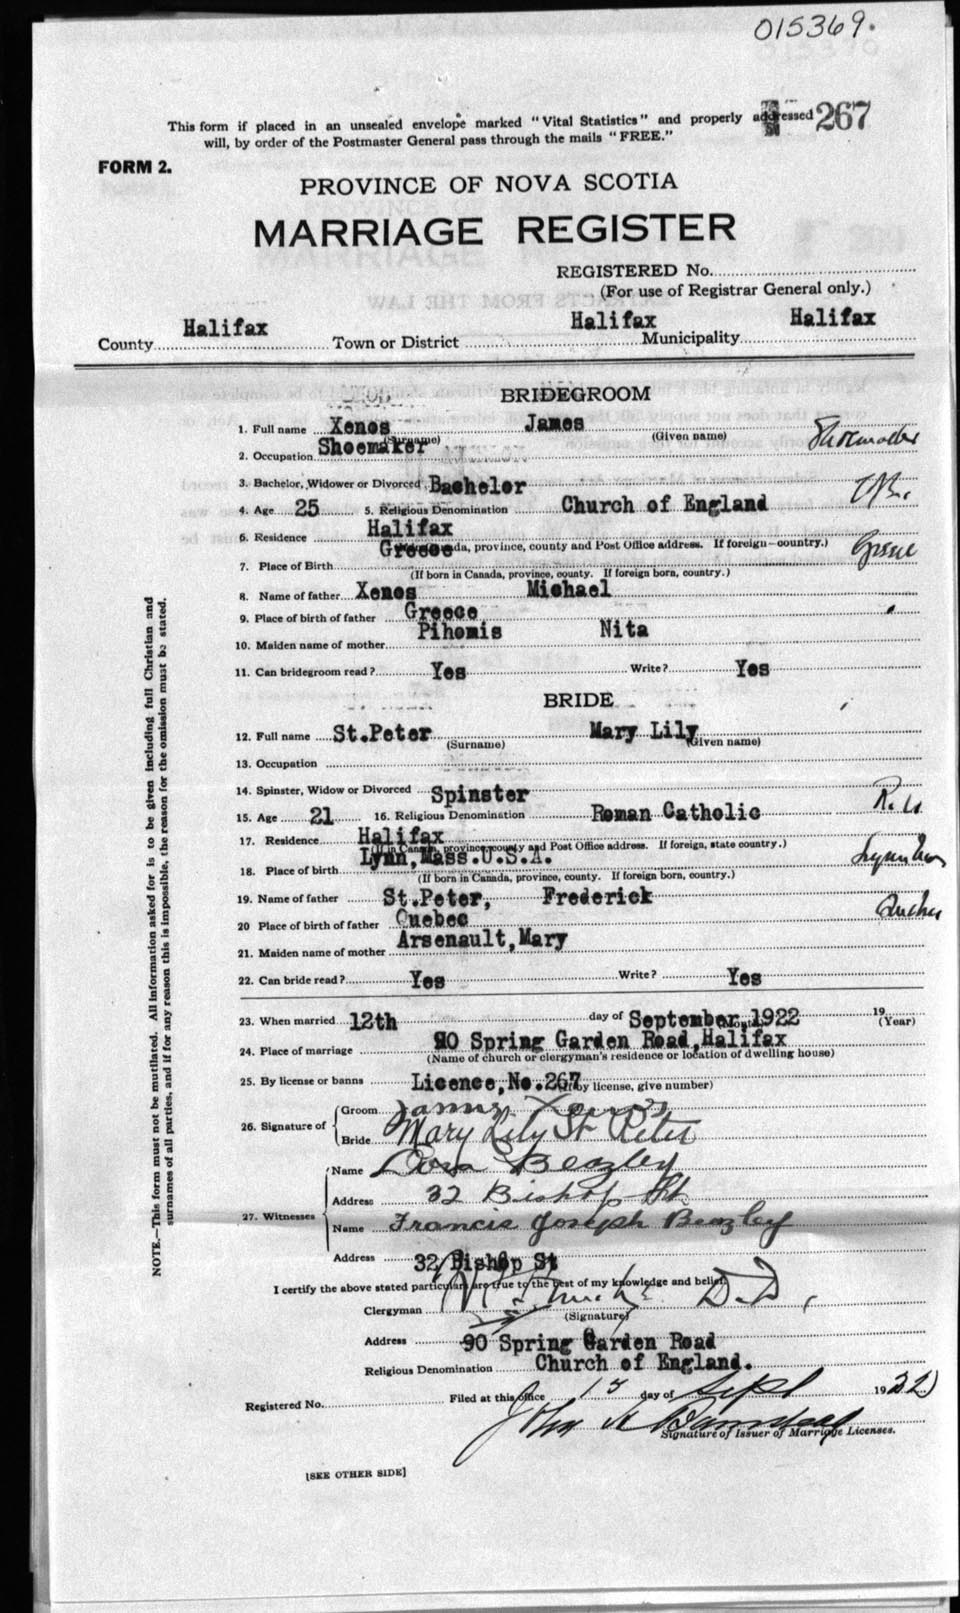 015369.
This form if placed in an unsealed envelope marked "Vital Statistics" and properly addressed 267
will, by order of the Postmaster General pass through the mails "FREE."
FORM 2.
PROVINCE OF NOVA SCOTIA
MARRIAGE REGISTER
REGISTERED No.
(For use of Registrar General only.)
County Halifax Town or District Halifax Municipality Halifax
BRIDEGROOM
1. Full name Xenos James
(Surname) (Given name)
2. Occupation Shoemaker Shoemaker
3. Bachelor, Widower or Divorced Bachelor
4. Age 25 5. Religious Denomination Church of England
6. Residence Halifax
province, county and Post Office address. If foreign—country.)
7. Place of Birth Greece Greece
(If born in Canada, province, county. If foreign born, country.)
8. Name of father Xenos Michael
9. Place of birth of father Greece
10. Maiden name of mother Pihomis Nita
11. Can bridegroom read? Yes Write? Yes
BRIDE
12. Full name St.Peter Mary Lily
(Surname) (Given name)
13. Occupation
14. Spinster, Widow or Divorced Spinster
15. Age 21 16. Religious Denomination Roman Catholic
17. Residence Halifax
(If in Canada, province, county and Post Office address. If foreign, state country.)
18. Place of birth Lynn, Mass.U.S.A.
(If born in Canada, province, county. If foreign born, country.)
19. Name of father St.Peter, Frederick
20 Place of birth of father Quebec Quebec
21. Maiden name of mother Arsenault,Mary
22. Can bride read? Yes Write? Yes
23. When married 12th day of September 1922 19
(Month) (Year)
24. Place of marriage 90 Spring Garden Road,Halifax
(Name of church or clergyman's residence or location of dwelling house)
25. By license or banns Licence,No.267 (If by license, give number)
26. Signature of
Groom James Xenos
Bride Mary Lily St Peter
27. Witnesses
Name Dora Beazley
Address 32 Bishop St
Name Francis Joseph Beazley
Address 32 Bishop St
I certify the above stated particulars are true to the best of my knowledge and belief.
Clergyman D.D.,
(Signature)
Address 90 Spring Garden Road
Religious Denomination Church of England.
Registered No. Filed at this office 15 day of Sept 1922
John A
Signature of Issuer of Marriage Licenses.
[SEE OTHER SIDE]
NOTE.—This form must not be mutilated. All information asked for is to be given including full Christian and
surnames of all parties, and if for any reason this is impossible, the reason for the omission must be stated.